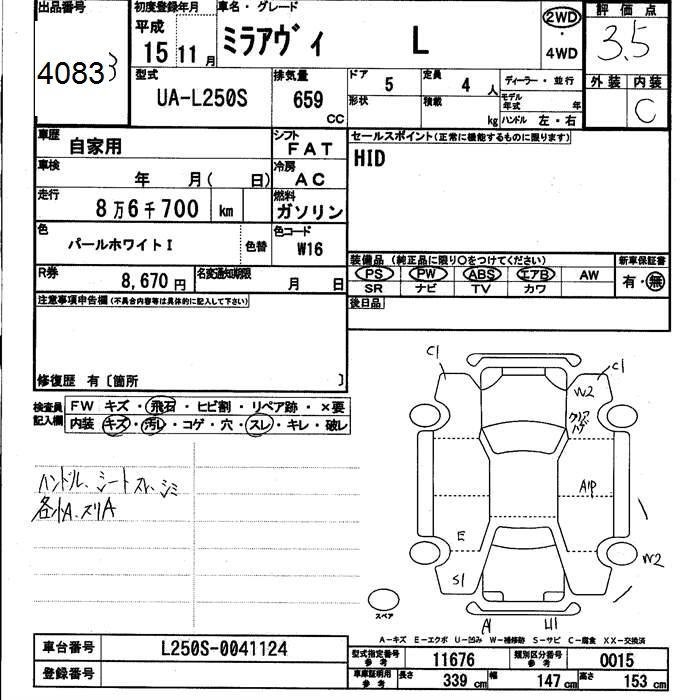 出品番号 初度登録年月 車名・グレード 評価点
40833 平成 15 11月 ミラアヴィ L 2WD ・ 4WD 3.5
型式 UA-L250S 排気量 659 CC ドア 5 定員 4人 ディーラー・並行 外装 内装
形状 積載 kg モデル年式 年 ハンドル 左・右 C
車歴 自家用 シフト FAT セールスポイント(正常に機能するものに限ります)
車検 年 月( 日) 冷房 AC HID
走行 8万6千700 km 燃料 ガソリン
色 パールホワイトI 色替 色コード W16
装備品 (純正品に限り○をつけてください) 新車保証書
R券 8,670円 名変通知期限 月 日 PS PW ABS エアB AW 有・無
SR ナビ TV カワ
注意事項申告欄(不具合内容等は具体的に記入して下さい) 後日品
修復歴 有〔箇所 〕
検査員記入欄 FW キズ・飛石・ヒビ割・リペア跡・×要
内装 キズ・汚レ・コゲ・穴・スレ・キレ・破レ
C1 C1
W2
クリアハゲ
ハンドル、シートスレ、シミ A1P
各小A.スリA
E W2
S1
スペア A1 H1
A-キズ E-エクボ U-凹み W-補修跡 S-サビ C-腐食 XX-交換済
車台番号 L250S-0041124 型式指定番号 参考 11676 類別区分番号 参考 0015
登録番号 車庫証明用 参考 長さ 339 cm 幅 147 cm 高さ 153 cm